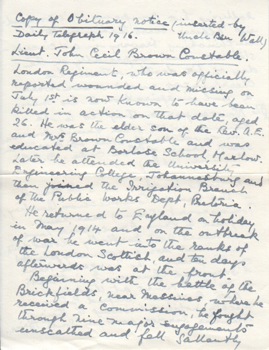 Copy of Obituary notice inserted by
Daily Telegraph 1916. Uncle Ben Well)
Lieut. John Cecil Brown Constable.
London Regiment, who was officially
reported wounded and missing on
July 1st is now known to have been
killed in action on that date, aged
26. He was the elder son of the Rev. A.E.
and Mrs Brown Constable and was
educated at Borlase School, Marlow.
Later he attended the University
Engineering College, Johannesburg and
then joined the Irrigation Branch
of the Public Works Dept, Pretoria.
He returned to England on holiday
in May 1914 and on the outbreak
of war he went into the ranks of
the London Scottish, and ten days
afterwards was at the front.
Beginning with the battle of the
Brickfields, near Messines, where he
received a Commission, he fought
through nine major engagements
unscathed and fell gallantly